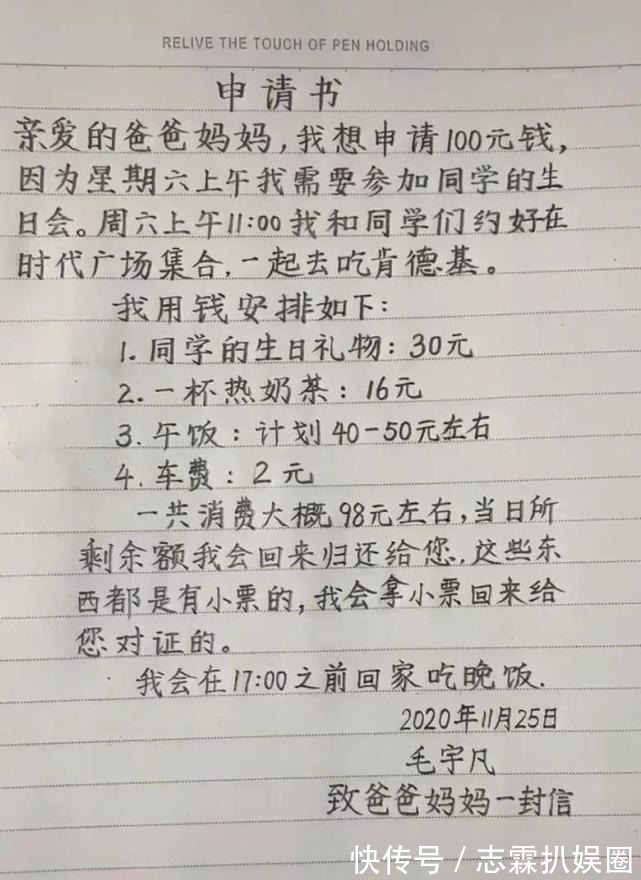 RELIVE THE TOUCH OF PEN HOLDING
申请书
亲爱的爸爸妈妈,我想申请100元钱,
因为星期六上午我需要参加同学的生
日会。周六上午11:00我和同学们约好在
时代广场集合,一起去吃肯德基。
我用钱安排如下:
1.同学的生日礼物:30元
2.一杯热奶茶:16元
3.午饭:计划40-50元左右
4.车费:2元
一共消费大概98元左右,当日所
剩余额我会回来归还给您,这些东
西都是有小票的,我会拿小票回来给
您对证的。
我会在17:00之前回家吃晚饭.
2020年11月25日
毛宇凡
致爸爸妈妈一封信
快传号/志霖扒娱圈